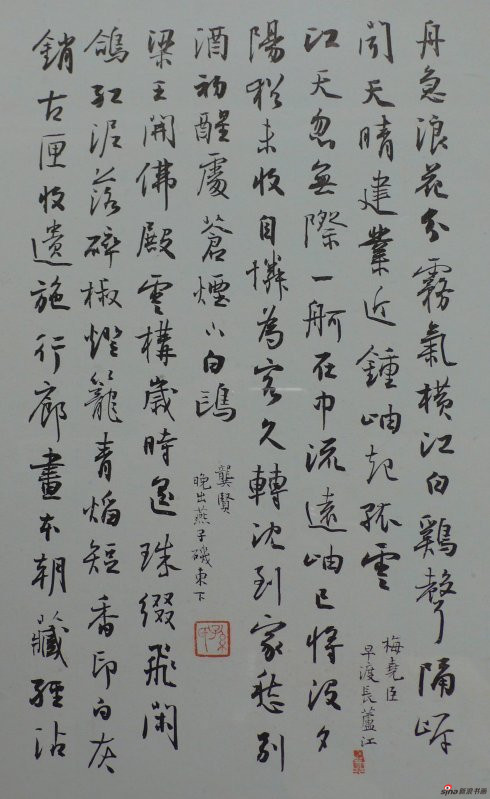 舟急浪花分霧氣橫江白鷄聲隔岸
聞天晴建業近鍾岫起孤雲
梅堯臣
早渡長蘆江
江天忽無際一舸在中流遠岫已將沒夕
陽猶未收自憐為客久轉到家愁別
酒初醒處蒼煙下白鷗
龔賢
晚出燕子磯東下
梁王開佛殿雲構歲時遥珠綴飛閑
鴿紅泥落碎椒燈籠青焰短香印白灰
銷古匣收遺施行廊畫本朝藏經沾
sina 新浪书画